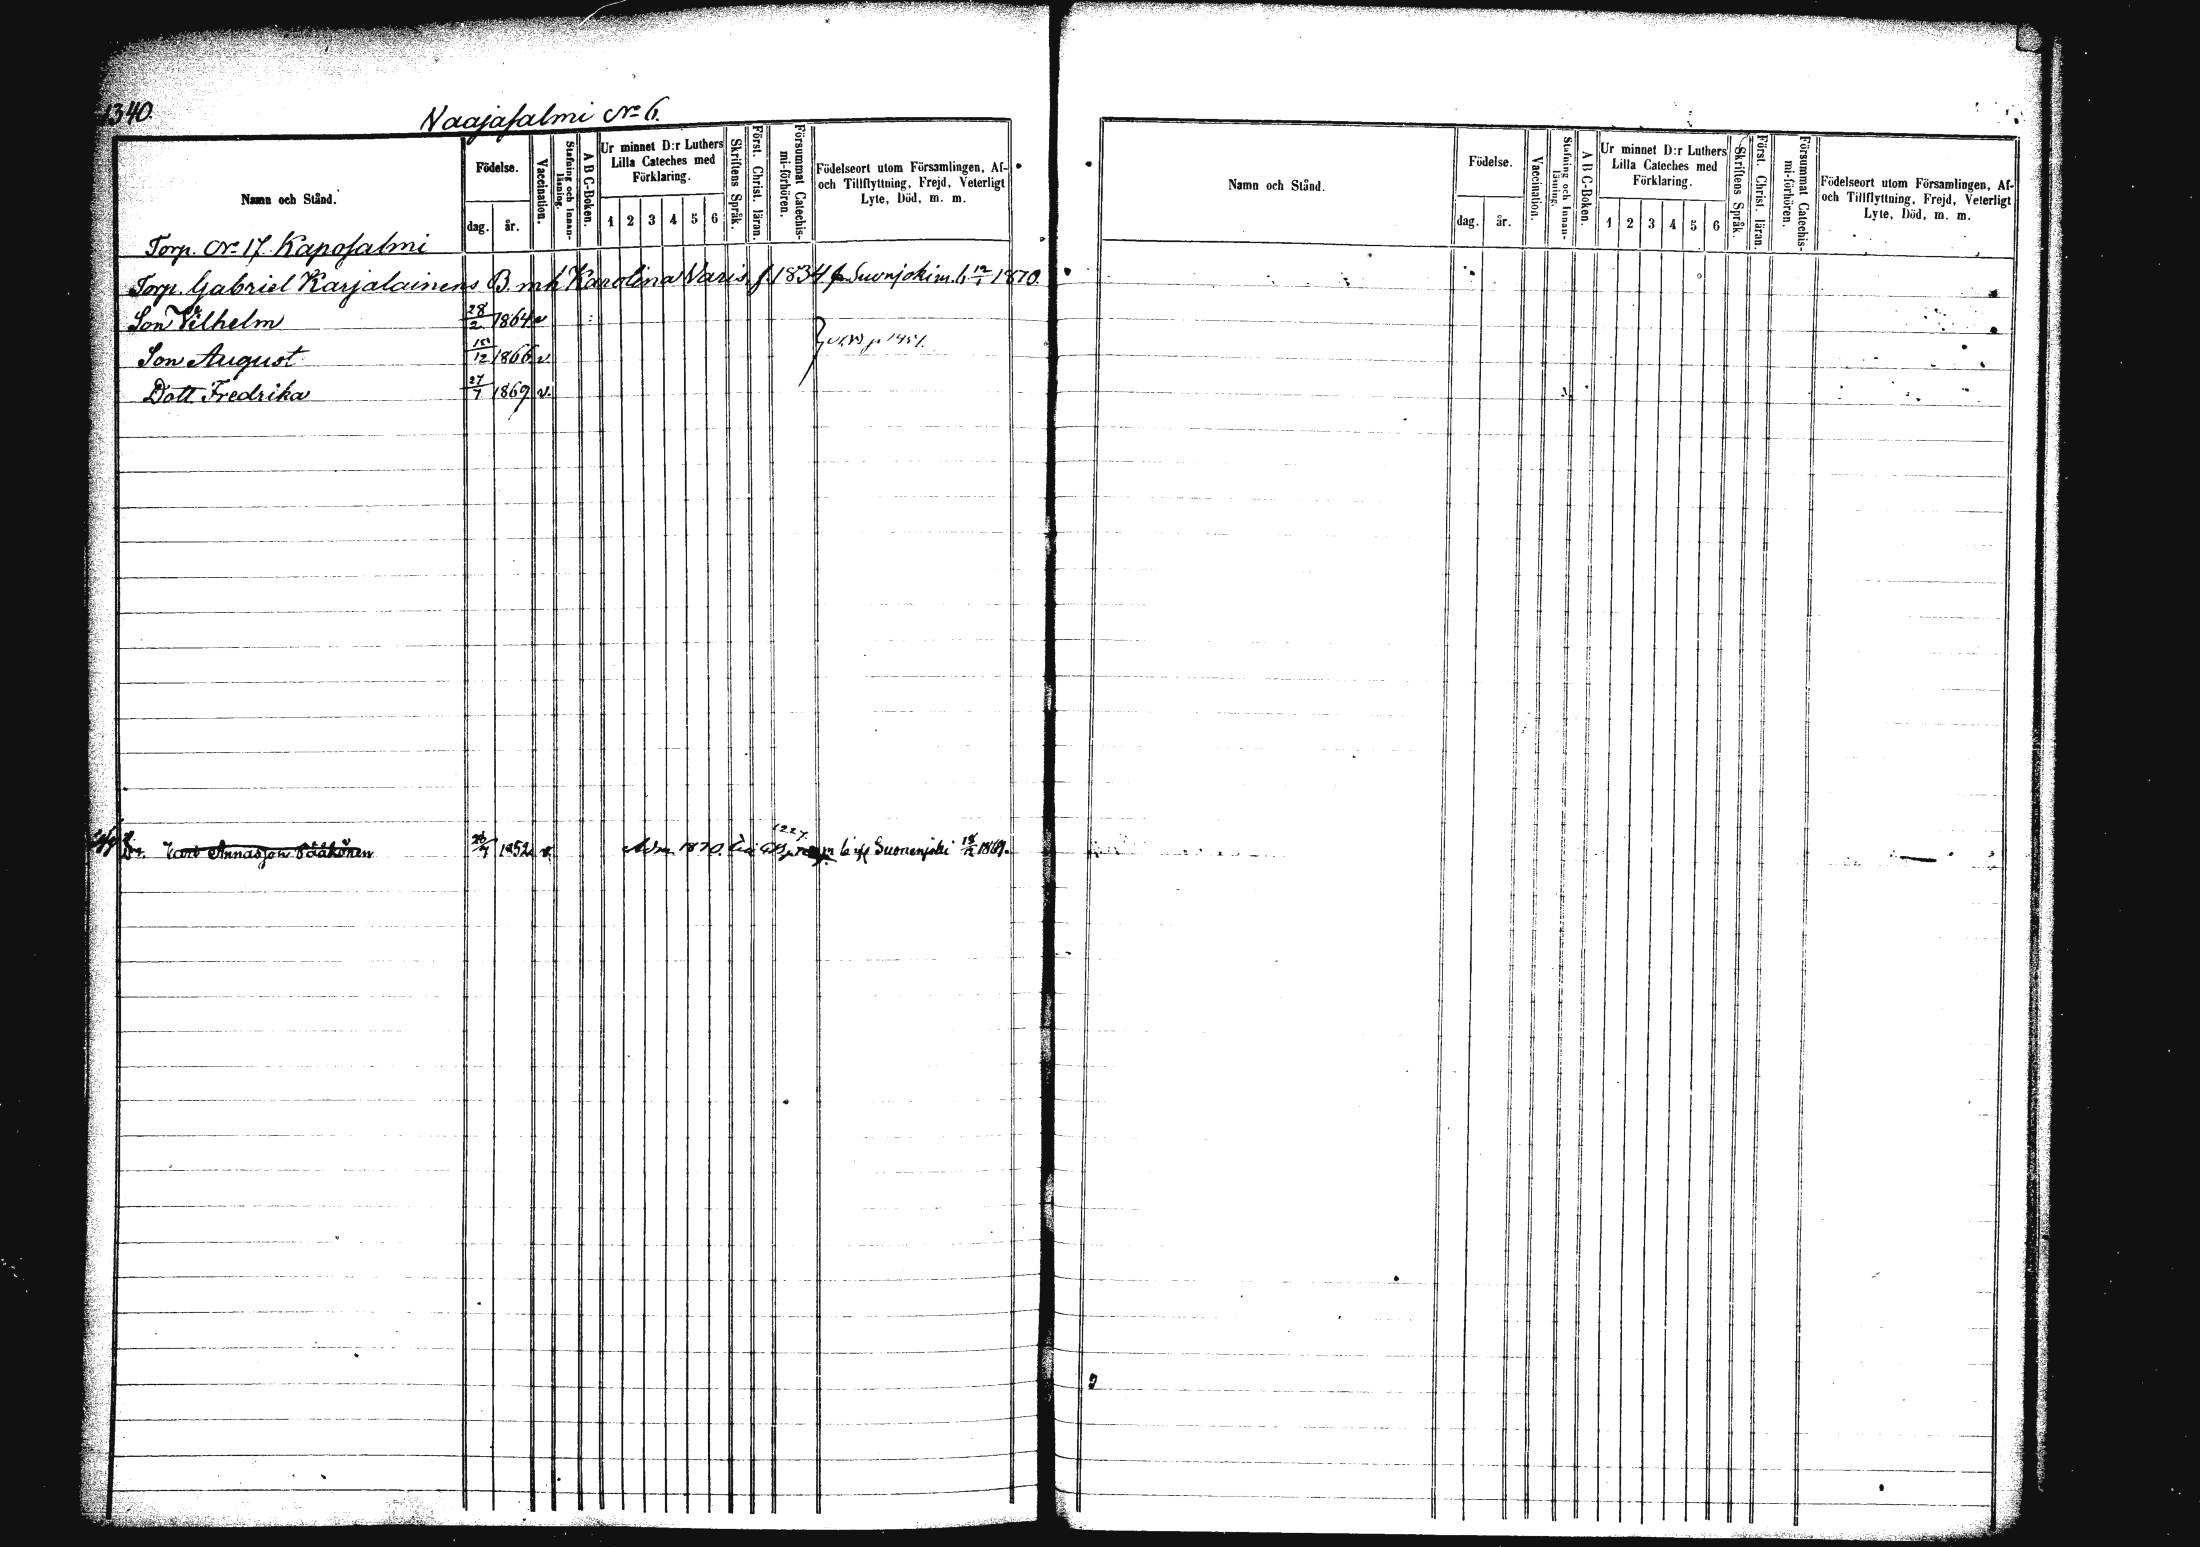 1340.
Naajasalmi No 6.
Namn och Stånd.
Födelse.
dag. år.
Vaccination.
Stafning och Innanläsning.
A B C-Boken.
Ur minnet D:r Luthers
Lilla Cateches med
Förklaring.
1 2 3 4 5 6
Skriftens Språk.
Först. Christ. läran.
Försummat Catechismi-förhören.
Födelseort utom Församlingen, Af-
och Tillflyttning, Frejd, Veterligt
Lyte, Död, m. m.
Torp. No 17. Kaposalmi
Torp. Gabriel Karjalainens B. mh Karolina Varis f. 1834 Suonjoki m. b. 12/1 1870.
Son Vilhelm 28/2 1864 v
Son August 15/12 1866 v.
Dott. Fredrika 27/7 1869 v.
1852 v. Adm 1870. 1227. Suonenjoki 18/12 1869.
Namn och Stånd.
Födelse.
dag. år.
Vaccination.
Stafning och Innanläsning.
A B C-Boken.
Ur minnet D:r Luthers
Lilla Cateches med
Förklaring.
1 2 3 4 5 6
Skriftens Språk.
Först. Christ. läran.
Försummat Catechismi-förhören.
Födelseort utom Församlingen, Af-
och Tillflyttning, Frejd, Veterligt
Lyte, Död, m. m.